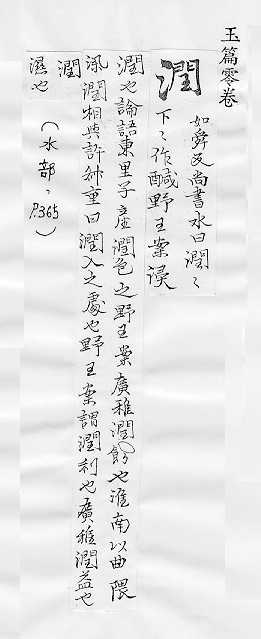 玉篇零卷
潤
如舜反尚書水曰潤〻
下〻作鹹野王案浸
潤也論語東里子產潤色之野王案廣雅潤飾也淮南以曲隈
潤相與許叔重曰潤入之處也野王案謂潤利也廣雅潤益也
潤
濕也
(水部、P.365)